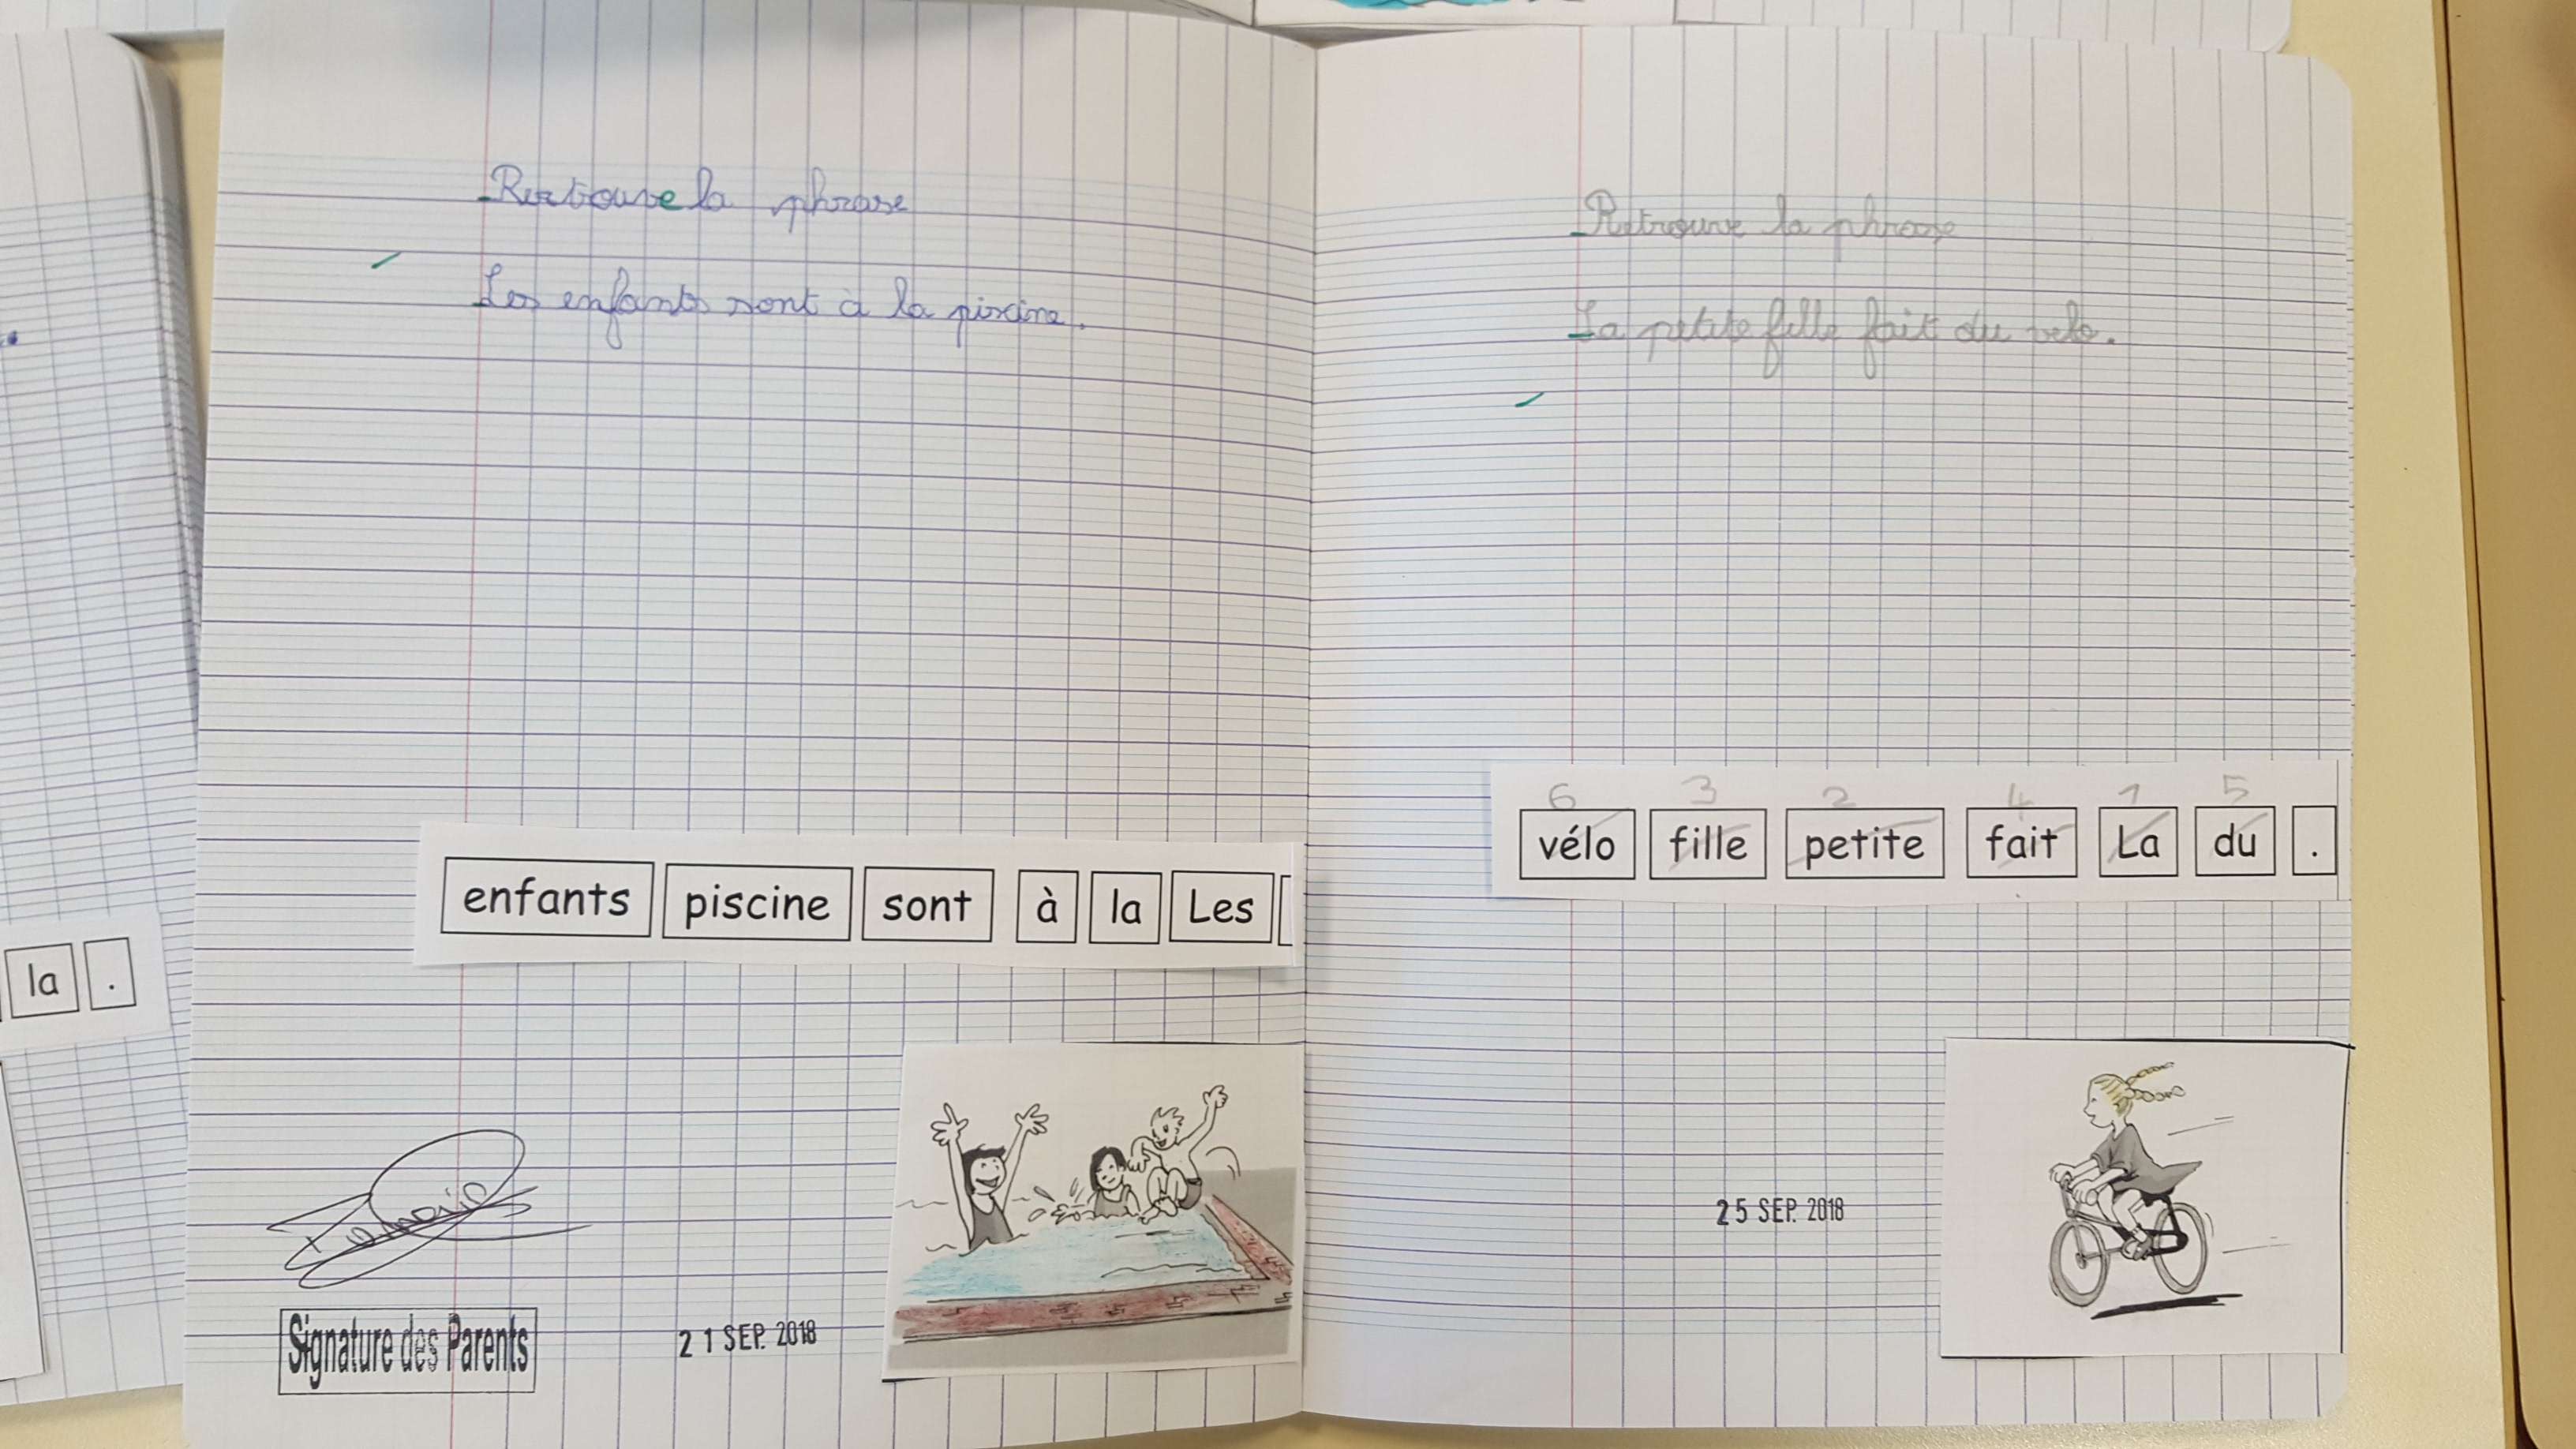 Retrouve la phrase
Les enfants sont à la piscine.
enfants piscine sont à la Les
Signature des Parents
21 SEP. 2018
la .
Retrouve la phrase
La petite fille fait du velo.
6 3 2 4 1 5
vélo fille petite fait La du .
25 SEP. 2018